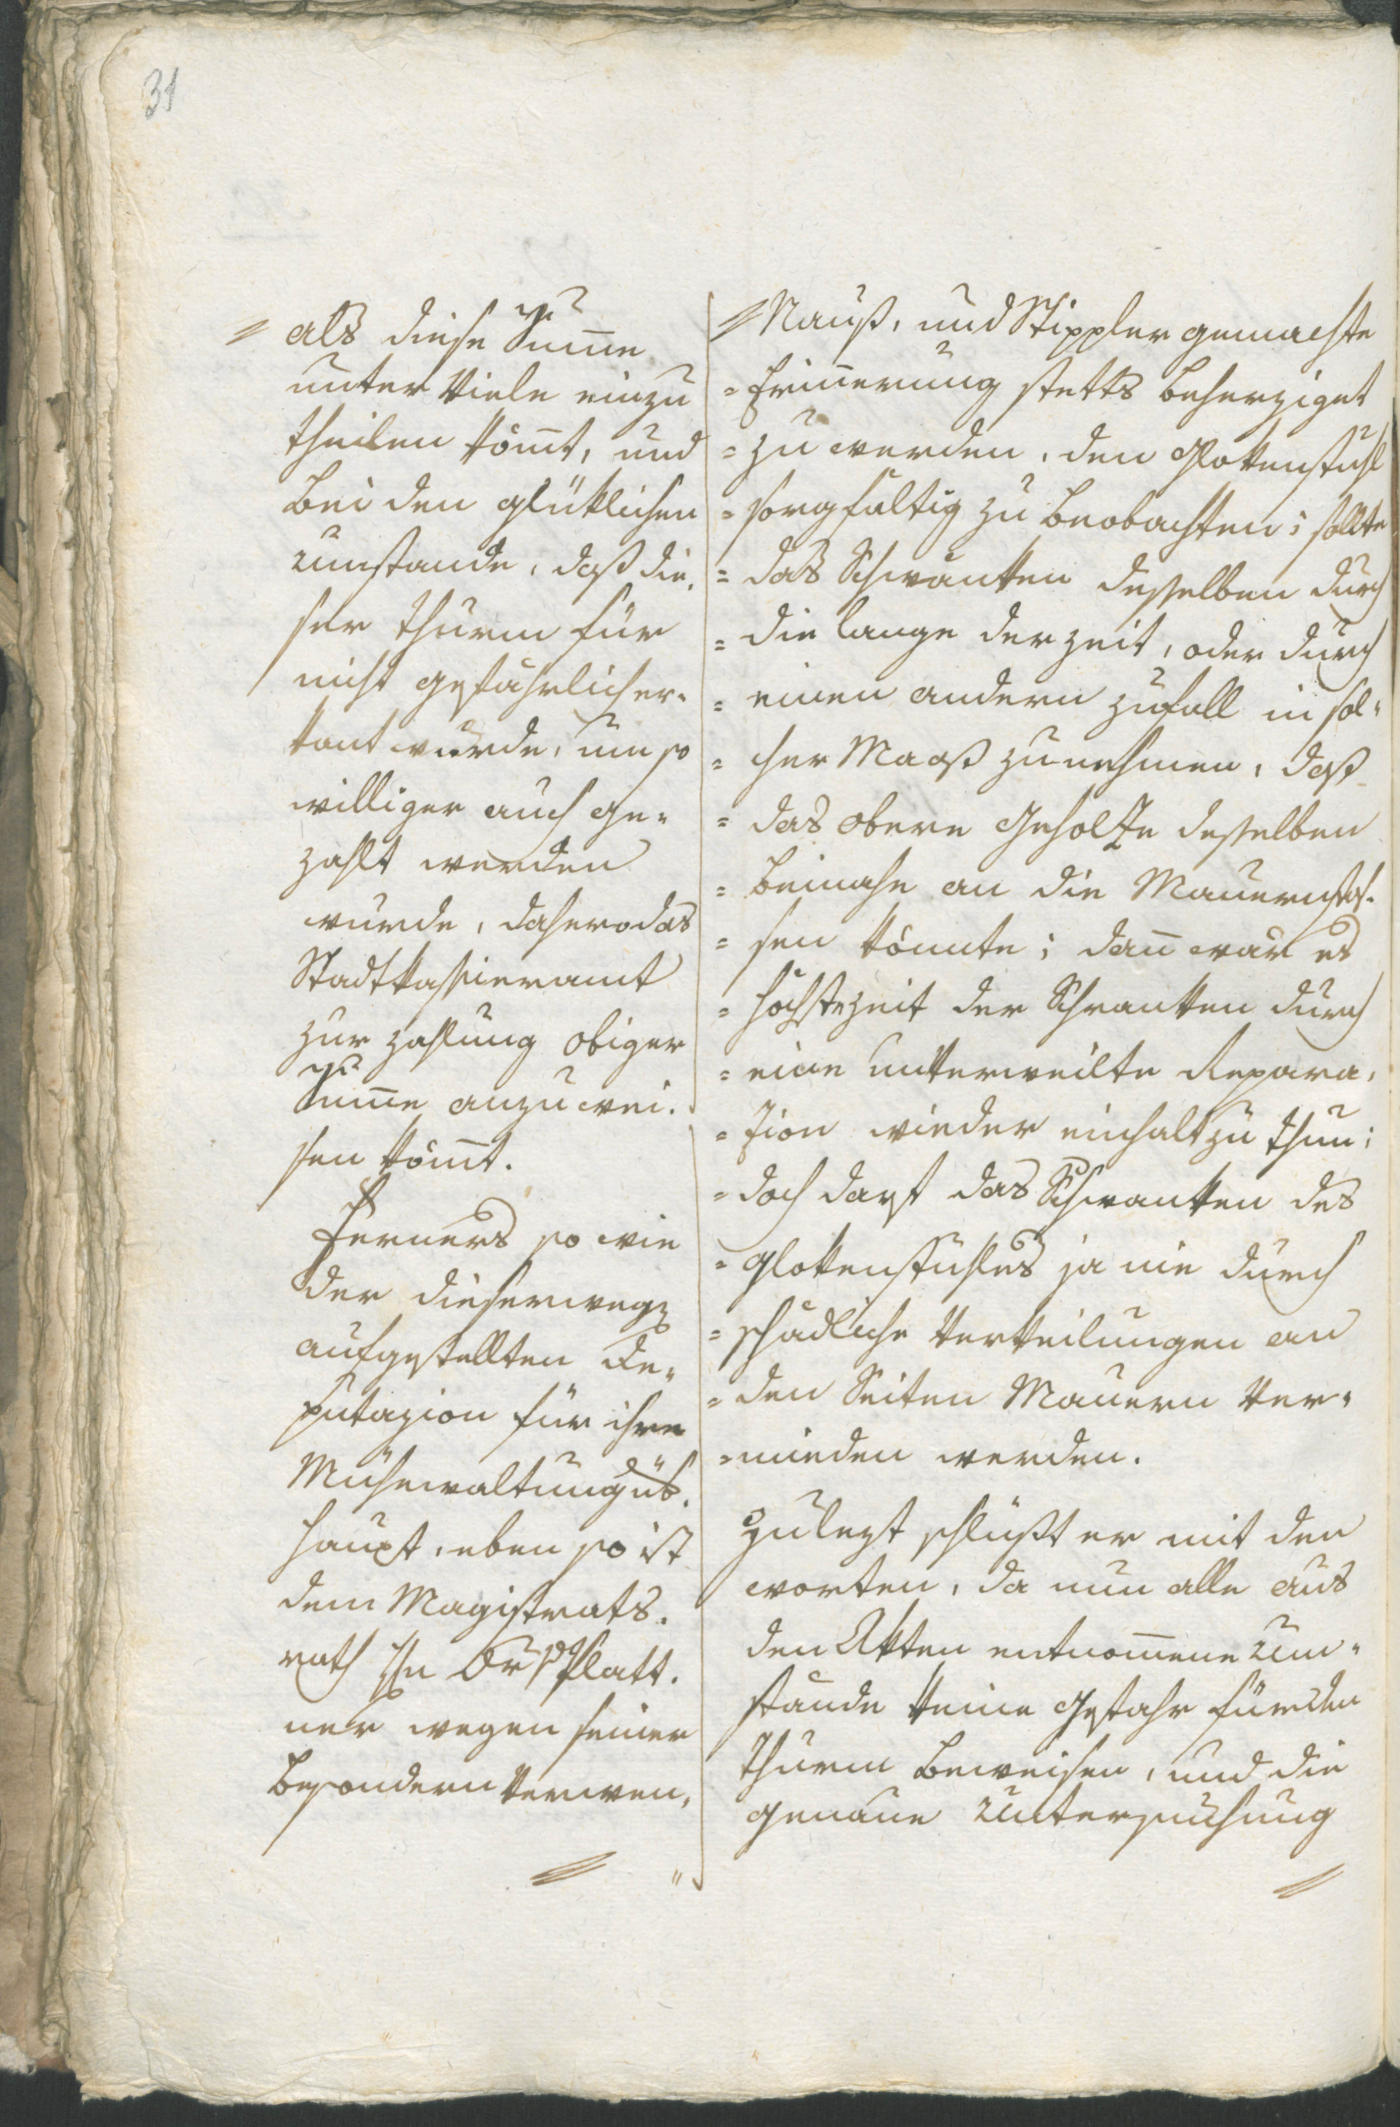 31
als diese Sum̄e
unter Viele einzu
theilen kom̄t, und
bei den glüklichen
Umstande, daß die,
ser Thurm für
nicht gefährlich er-
kant wurde, um so
williger auch ge-
zahlt werden
wurde, dahero das
Stadtkassieramt
zur Zahlung obiger
Sum̄e anzuwei-
sen kom̄t.
Ferners so wie
der dieserwegen
aufgestellten De-
putazion für ihre
Mühewaltung üb.
haupt, eben so ist
dem Magistrats-
rath Hn Dr. Platt-
ner wegen seiner
besondern Verwen,
Nauß, und Stippler gemachte
= Erin̄erung stetts beherziget
= zu werden, den Glokenstuhl
= sorgfaltig zu beobachten; sollte
= das Schwanken desselben durch
= die Lange der Zeit, oder durch
= einen andern Zufall in sol-
= cher Maaß zunehmen, daß
= das obere Geholze desselben
= beinahe an die Mauern sto-
= sen könnte; dan̄ war es
= höchste Zeit der Schwanken durch
= eine unverweilte Repara,
= zion wieder einhalt zu thun;
= doch darf das Schwanken des
= Glokenstuhles ja nie durch
= schädliche Verkeilungen an
= den Seiten Mauern ver-
= mieden werden.
Zulezt schlüßt er mit den
Worten, da nun alle aus
den Akten entnom̄ene Um-
stände keine Gefahr für den
Thurm beweisen, und die
genaue Untersuchung